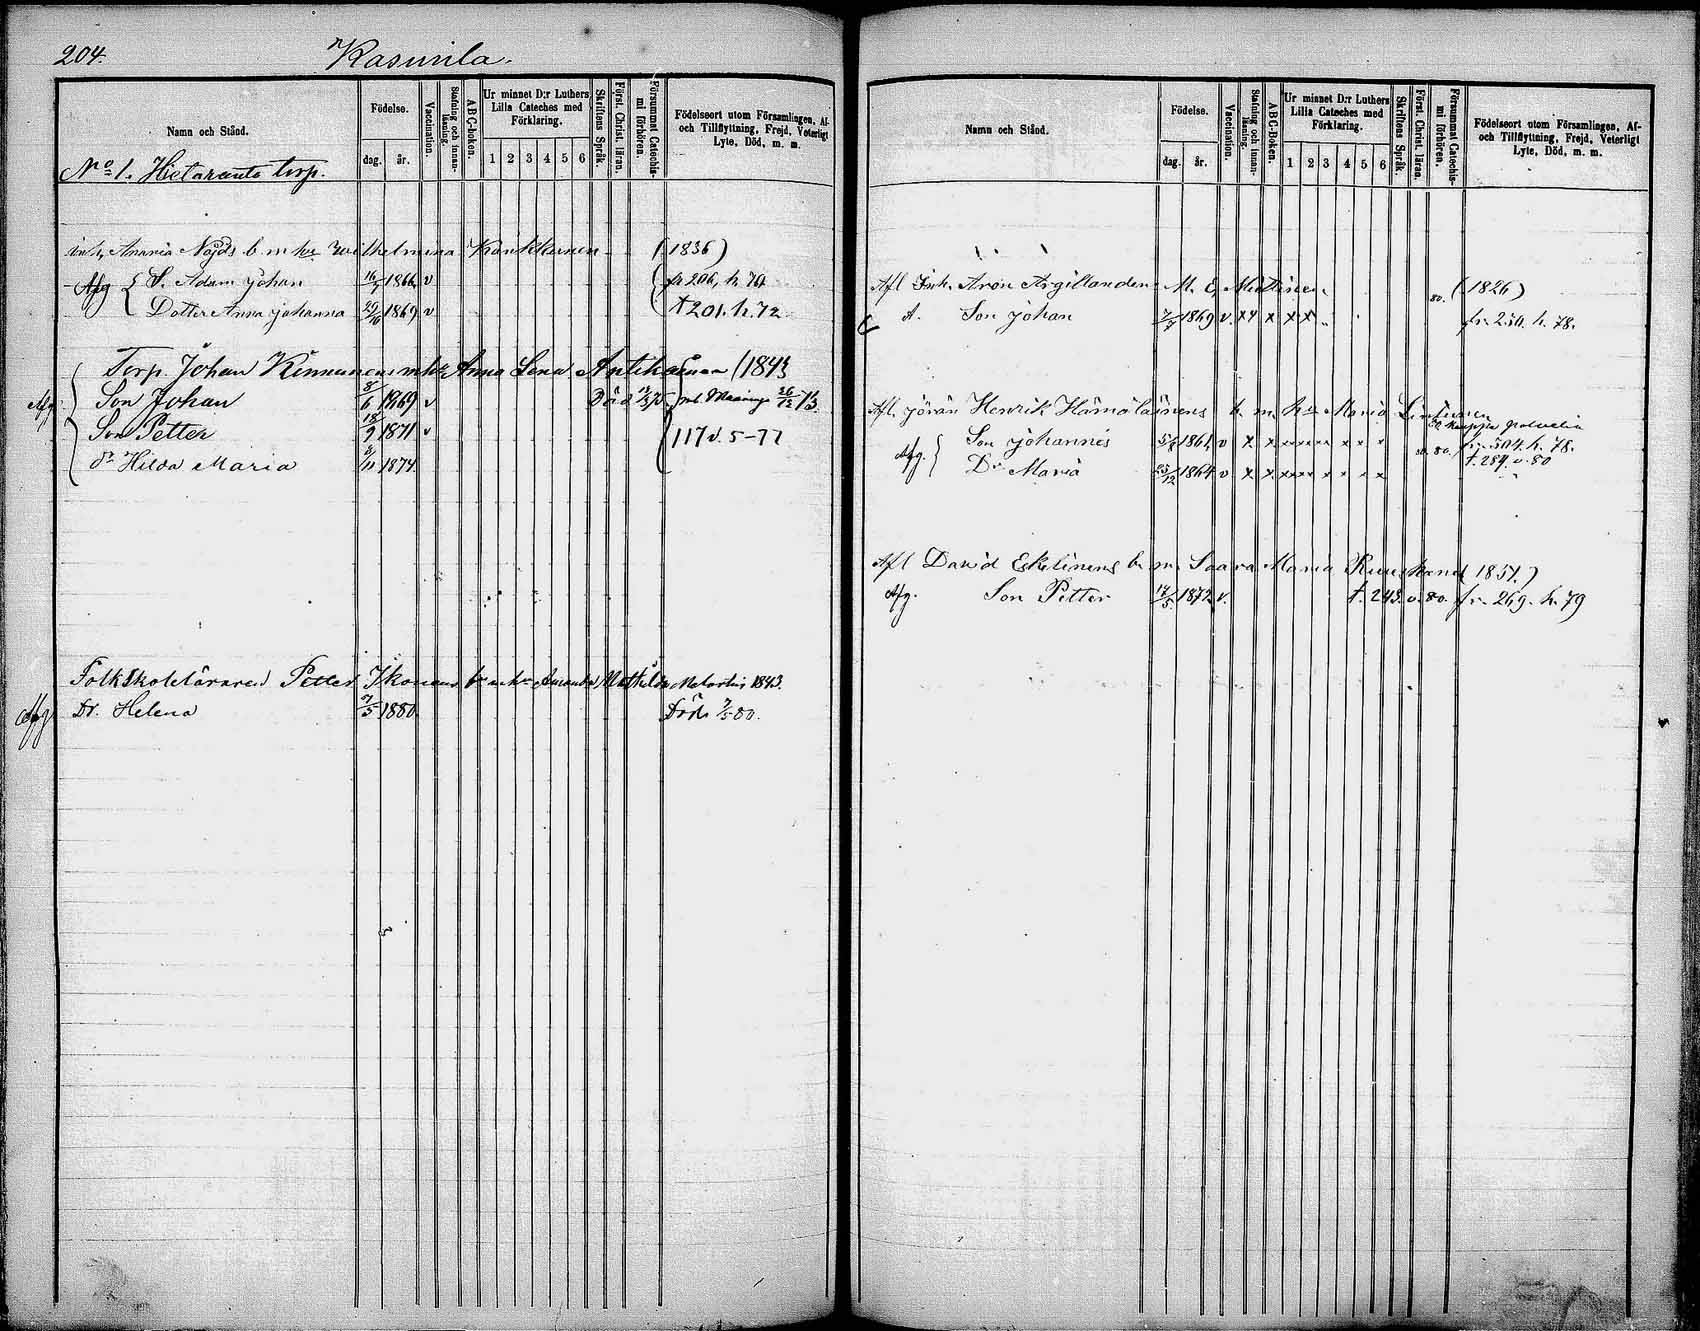 204.
Kasurila.
Namn och Stånd.
Födelse.
dag.
år.
Vaccination.
Stafning och innan-läsning.
ABC-boken.
Ur minnet D:r Luthers
Lilla Cateches med
Förklaring.
1 2 3 4 5 6
Skriftens Språk.
Först. Christ. läran.
Försummat Catechis-mi förhören.
Födelseort utom Församlingen, Af-
och Tillflyttning, Frejd, Veterligt
Lyte, Död, m. m.
No 1. Hietaranta torp.
Inh. Anania Nöjds b. m hu Wilhelmina Kankkunen (1836)
Afg S. Adam Johan 16/7 1866 v fr 206, h. 70
Dotter Anna Johanna 29/10 1869 v t 201. h. 72
Torp. Johan Kinnunens m hu Anna Lena Antikainen (1843
Afg. Son Johan 8/6 1869 v Död 26/12 73.
Son Petter 18/9 1871 v 117 v. 5-77
Dr Hilda Maria 8/11 1874.
Folkskoleläraren Petter Ikonens b m hu Amanda Mathilda 1843.
Afg Dr. Helena 5/5 1880 Död 7/5 80.
Namn och Stånd.
Födelse.
dag.
år.
Vaccination.
Stafning och innan-läsning.
ABC-Boken.
Ur minnet D:r Luthers
Lilla Cateches med
Förklaring.
1 2 3 4 5 6
Skriftens Språk.
Först. Christ. läran.
Försummat Catechis-mi förhören.
Födelseort utom Församlingen, Af-
och Tillflyttning, Frejd, Veterligt
Lyte, Död, m. m.
Afl Inh. Aron Argillanders M. E. Miettinen 80. (1826)
A. Son Johan 7/7 1869 v. x x x x x fr. 250. h. 78.
Afl. Jöran Henrik Hämäläinens b. m. hu Maria
Afg. Son Johannis 1861 v x x x x x x x x 80. fr. 504. h. 78.
Dr Maria 25/12 1864 v x x x x x x x x t. 284. v. 80
Afl David Eskelinens b m. Saara Maria Ruuskanen (1851.)
Afg. Son Petter 14/5 1872 v. t. 243. v. 80. fr. 269. h. 79